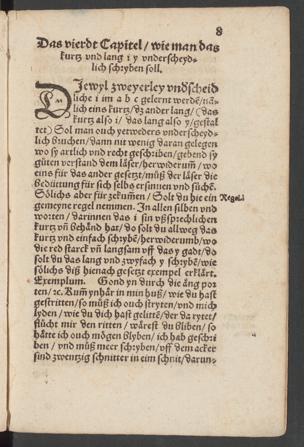 8
Das vierdt Capitel / wie man das
kurtz vnd lang i y vnderscheyd-
lich schryben soll.
DJewyl zweyerley vndscheid
liche i im a b c gelernt werdē / nā-
lich eins kurtz / dz ander lang / (das
kurtz also i / das lang also y / gestal
tet) Sol man ouch yetweders vnderscheyd-
lich bruchen / dann nit wenig daran gelegen
wo sy artlich vnd recht geschriben / gebend sy
güten verstand dem läser / herwiderum̃ / wo
eins für das ander gesetzt / müß der läser die
Bedütung für sich selbs ersinnen vnd süchē.
Sölichs aber für zekum̃en / Solt du hie ein
Regel
gemeyne regel nemmen. In allen silben vnd
worten / darinnen das i sin vßsprechlichen
kurtz vn̄ behänd hat / do solt du allweg das
kurtz vnd einfach schrybē / herwiderumb / wo
die red starck vn̄ langsam vff das y gadt / do
solt du das lang vnd zwyfach y schrybē / wie
sölichs diß hienach gesetzt exempel erklärt.
Exemplum. Gond yn durch die äng por
ten / ⁊c. Kum̃ ynhär in min huß / wie du hast
gestritten / so müß ich ouch stryten / vnd mich
lyden / wie du dich hast gelittē / der da rytet /
flücht mir den ritten / wärest du bliben / so
hätte ich ouch mögen blyben / ich hab geschri
ben / vnd müß meer schryben / vff dem acker
sind zwentzig schnitter in eim schnit / darun-